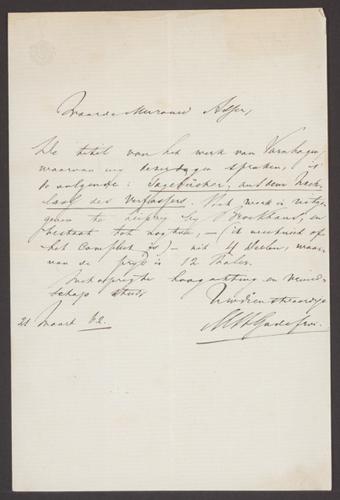 Waarde Mevrouw Asser,
De titel van het werk van Varnhagen,
waarvan wij dezer dagen spraken, is
de volgende: Tagebücher, aus dem Nach-
lass des Verfassers. Het werk is uitge-
geven te Leipzig bij Brockhaus, en
bestaat tot nog toe, – (ik weet niet of
het compleet is) – uit 4 Deelen, waar-
van de prijs is 12 Thaler.
Met oprechte hoogachting en vriend-
schap steeds
Uw dienstvaardige
MH Godefroi.
21 Maart 62.